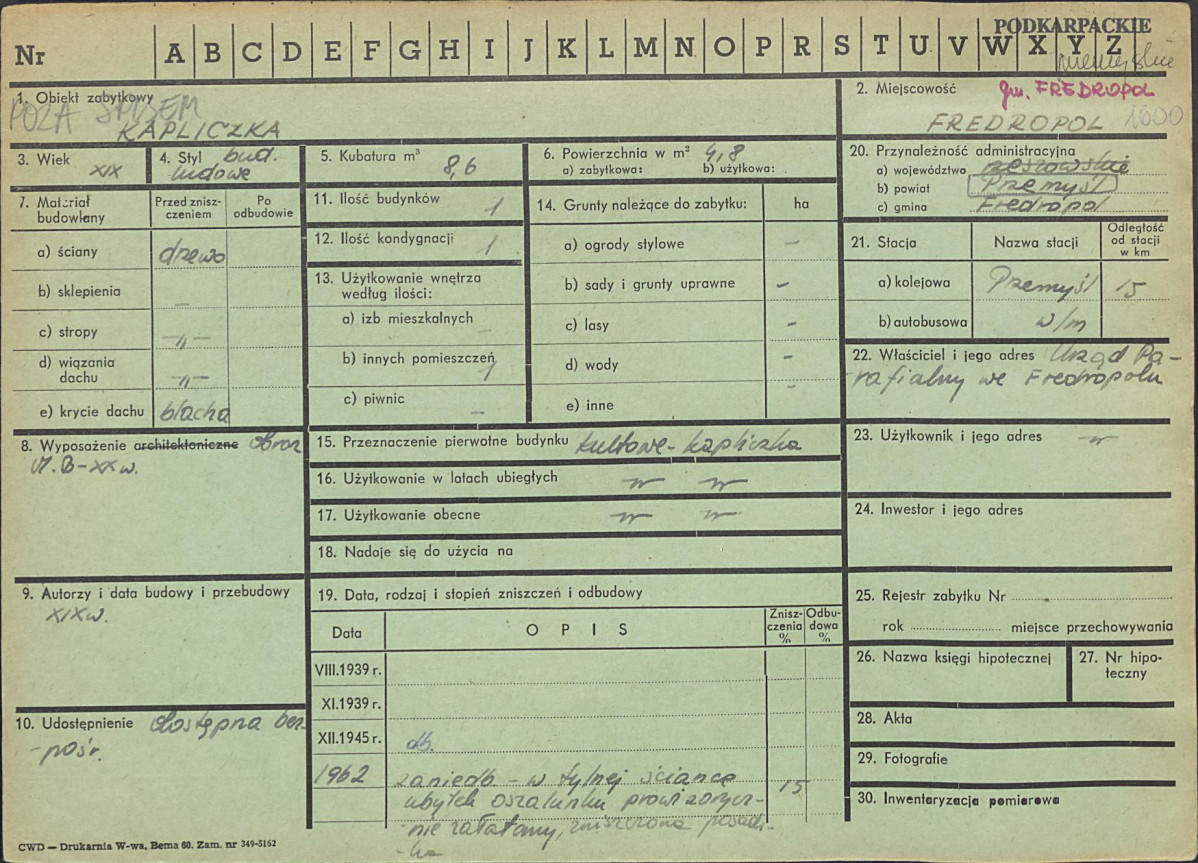 PODKARPACKIE
Nr A B C D E F G H I J K L M N O P R S T U V W X Y Z
przemyskie
1. Obiekt zabytkowy
POZA SPISEM
KAPLICZKA
2. Miejscowość gm. FREDROPOL
FREDROPOL 1600
3. Wiek
XIX
4. Styl bud.
ludowe
5. Kubatura m³
8,6
6. Powierzchnia w m² 4,8
a) zabytkowa: b) użytkowa:
20. Przynależność administracyjna
a) województwo rzeszowskie
b) powiat Przemyśl
c) gmina Fredropol
7. Materiał budowlany
Przed zniszczeniem
Po odbudowie
a) ściany drzewo
b) sklepienia –
c) stropy –„–
d) wiązania dachu –„–
e) krycie dachu blacha
11. Ilość budynków 1
12. Ilość kondygnacji 1
13. Użytkowanie wnętrza
według ilości:
a) izb mieszkalnych –
b) innych pomieszczeń 1
c) piwnic –
14. Grunty należące do zabytku: ha
a) ogrody stylowe –
b) sady i grunty uprawne –
c) lasy –
d) wody –
e) inne –
21. Stacja
Nazwa stacji
Odległość od stacji w km
a) kolejowa Przemyśl 15
b) autobusowa w/m
22. Właściciel i jego adres Urząd Pa-
rafialny we Fredropolu
8. Wyposażenie architektoniczne obraz
M.B – XX w.
15. Przeznaczenie pierwotne budynku kultowe - kapliczka
16. Użytkowanie w latach ubiegłych –„– –„–
17. Użytkowanie obecne –„– –„–
18. Nadaje się do użycia na
23. Użytkownik i jego adres –„–
24. Inwestor i jego adres
9. Autorzy i data budowy i przebudowy
XIX w.
19. Data, rodzaj i stopień zniszczeń i odbudowy
Data
O P I S
Zniszczenia %
Odbudowa %
VIII.1939 r.
XI.1939 r.
XII.1945 r. db.
1962 zaniedb – w tylnej ściance
ubytek oszalunku prowizorycz-
-nie załatany, zniszczona posadz-
-ka
15
25. Rejestr zabytku Nr
rok miejsce przechowywania
26. Nazwa księgi hipotecznej
27. Nr hipoteczny
28. Akta
29. Fotografie
30. Inwentaryzacja pomiarowa
10. Udostępnienie dostępna bez-
-pośr.
CWD — Drukarnia W-wa, Bema 60. Zam. nr 349-5162